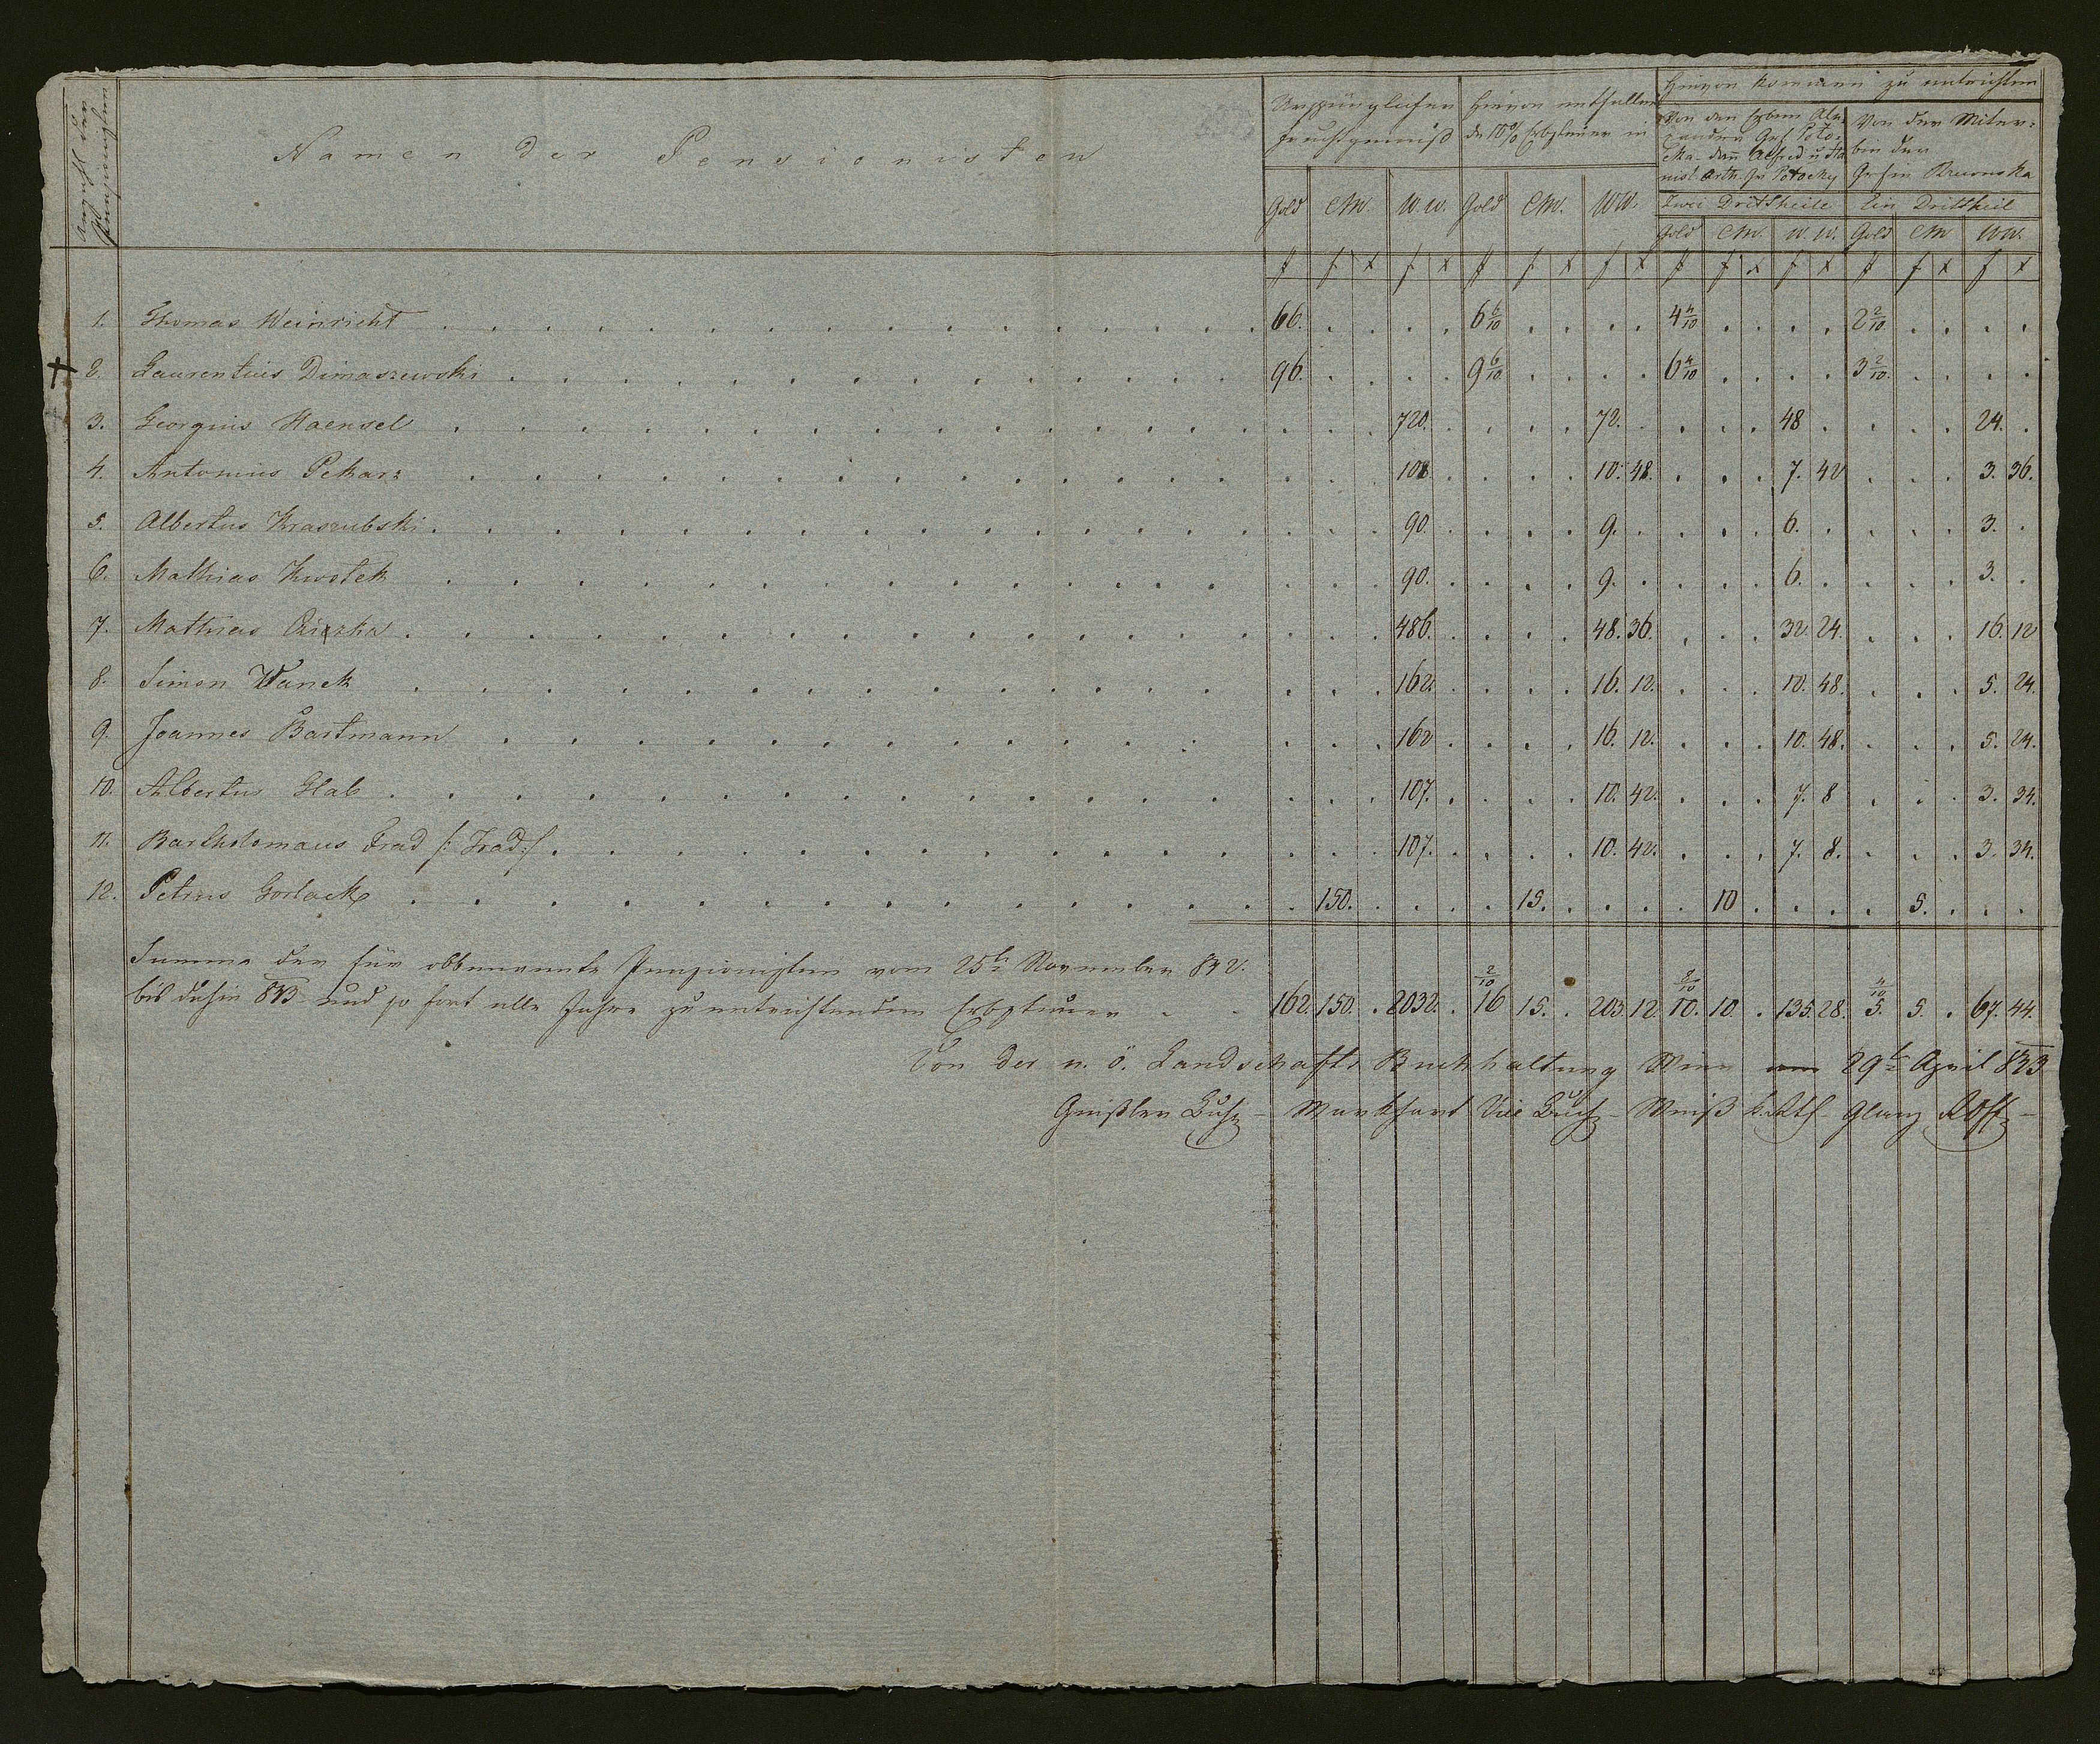 Anzahl der Pensionisten
Namen der Pensionisten
Ursprünglicher Fruchtgenuß
Hievon entfallen die 10% Erbsteuer in
Hievon kommen zu entrichten
Von den Erben Alexander Grf Potocka dan Alfred u
Von der Miterbin der Grfin
Zwei Drittheile
Ein Drittheil
Gold CM. W.W. Gold CM. WW. Gold CM. W.W. Gold CM WW.
# f x f x # f x f x # f x f x # f x f x
1. Thomas Weinricht 66. 6 6/10 4 4/10 2 2/10
† 2. Laurentius Dimaszewski 96. 9 6/10 6 4/10 3 2/10.
3. Georgius Haensel 720. 72. 48 24.
4. Antonius Pekarz 108. 10. 48. 7. 12 3. 36.
5. Albertus Kraszubski 90. 9. 6. 3.
6. Mathias Kwotek 90. 9. 6. 3.
7. Mathias 486. 48. 36. 32. 24. 16. 12
8. Simon Wanek 162. 16. 12. 10. 48. 5. 24.
9. Joannes Bartmann 162 16. 12. 10. 48. 5. 24.
10. Albertus Glab 107. 10. 42. 7. 8 3. 34.
11. Bartholomaus Frad /: Trad :/ 107. 10. 42. 7. 8. 3. 34.
12. Petrus Gorlack 150. 15. 10 5.
Summa der für obbenannte Pensionisten vom 25t November 832.
bis dahin 833 und so fort alle Jahre zu entrichtenden Erbsteuer 162. 150. 2032. 16 2/10 15. 203. 12. 10. 8/10 10. 135. 28. 5. 4/10 5. 67. 44.
Von der n. ö. Landschafts Buchhaltung Wien am 29t April 833